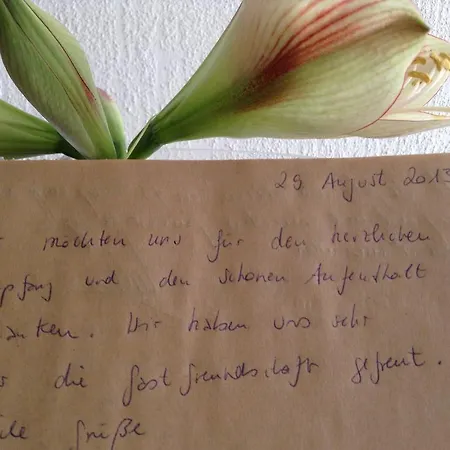 29 August 2013
r möchten uns für den herzlichen
pfang und den schönen Aufenthalt
anken. Wir haben uns sehr
r die Gastfreundschaft gefreut.
ele Grüße